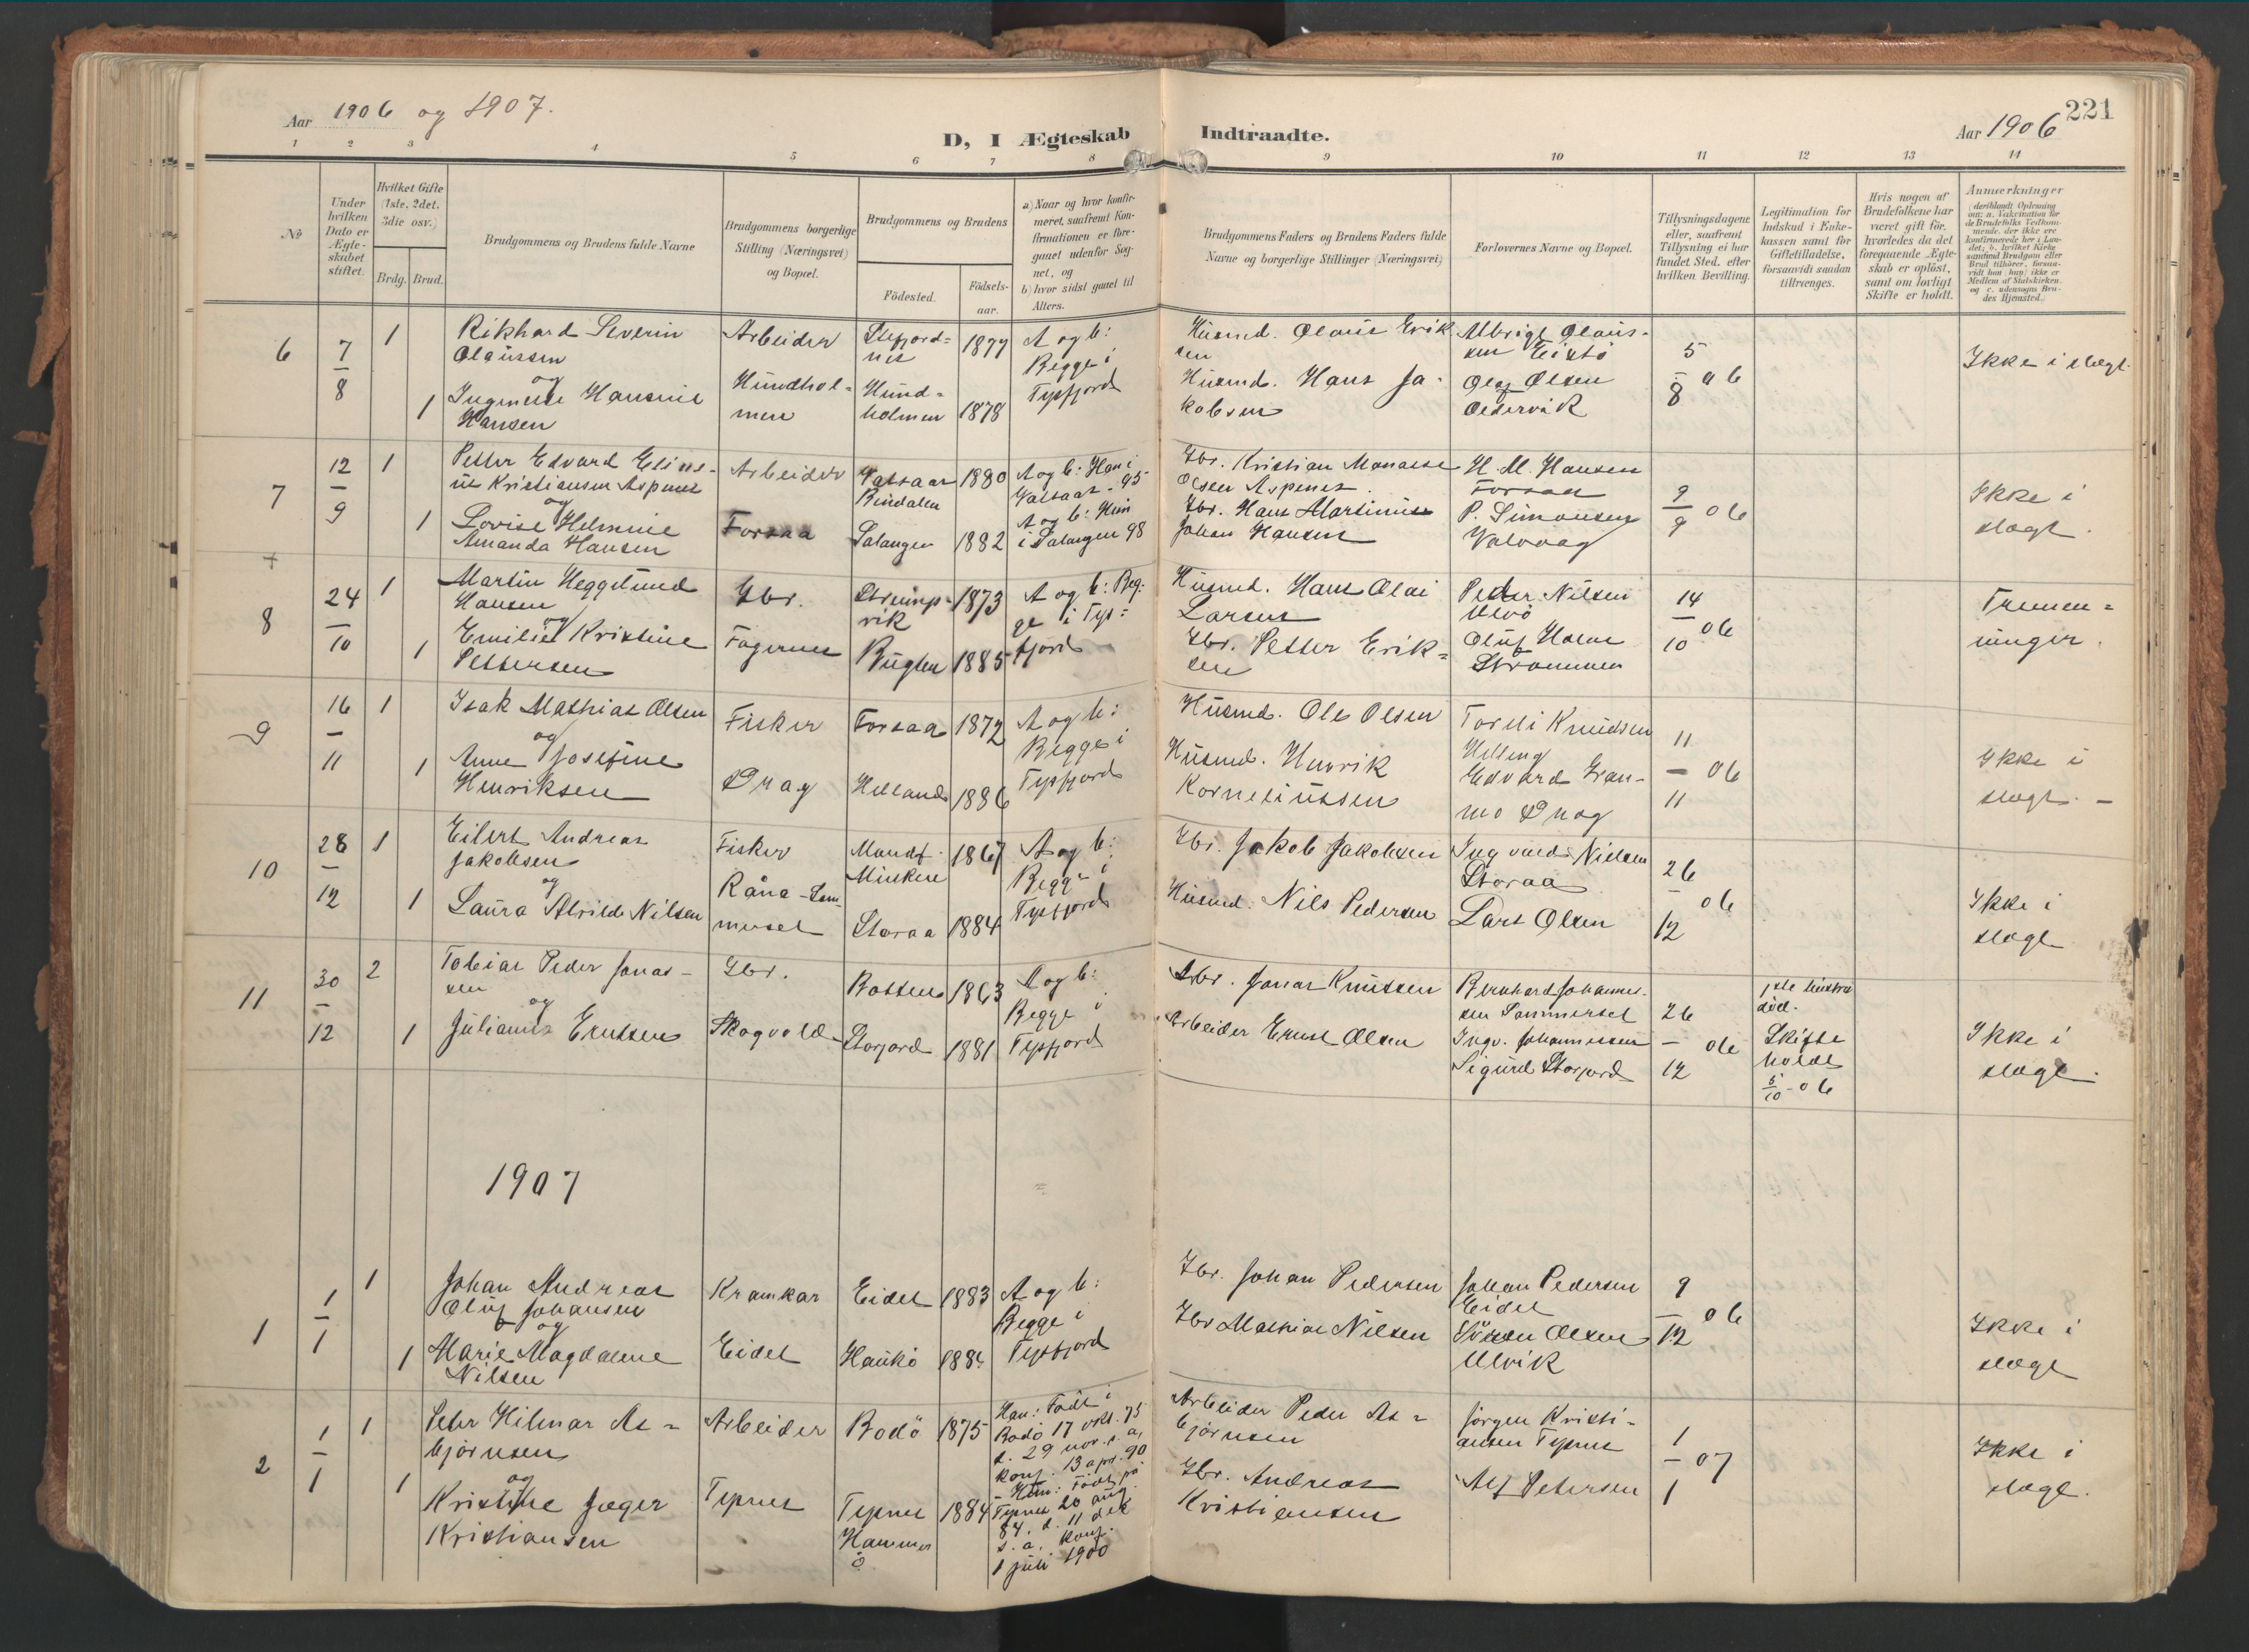 Aar 1906 og 1907.
D, I Ægteskab Indtraadte.
Aar 1906
221
1 2 3 4 5 6 7 8 9 10 11 12 13 14
No
Under hvilken Dato er Ægteskabet stiftet.
Hvilket Gifte (1ste, 2det, 3die osv.)
Brdg. Brud.
Brudgommens og Brudens fulde Navne
Brudgommens borgerlige Stilling (Næringsvei) og Bopæl.
Brudgommens og Brudens
Födested.
Födsels-aar.
a) Naar og hvor konfirmeret, saafremt Konfirmationen er foregaaet udenfor Sognet, og
b) hvor sidst gaaet til Alters.
Brudgommens Faders og Brudens Faders fulde Navne og borgerlige Stillinger (Næringsvei)
Forlovernes Navne og Bopæl.
Tillysningsdagene eller, saafremt Tillysning ei har fundet Sted, efter hvilken Bevilling.
Legitimation for Indskud i Enkekassen samt for Giftetilladelse, forsaavidt saadan tiltrænges.
Hvis nogen af Brudefolkene har været gift för, hvorledes da det foregaaende Ægteskab er oplöst, samt om lovligt Skifte er holdt.
Anmærkninger
6
7/8
1
Rikhard Severin
Olaussen
og
1
Hansine
Hansen
Arbeider
Hundhol-
men
Stefjord-
nes
1877
Hund-
holmen 1878
A og b:
Begge i
Tysfjord
Husmd. Olaus Erik-
sen
Husmd. Hans Ja-
kobsen
Albrigt Olaus-
sen
Olaf Olsen
Oldervik
5/8 06
Ikke i slægt.
7
12/9
1
Petter Edvard Eline-
us Kristiansen Aspenes
og
1
Lovise Helmine
Amanda Hansen
Arbeider
Forsaa
Bindalen
1880
Salangen 1882
A og b: Han i
95
A og b: Hun
i Salangen 98
Gbr. Kristian Manasse
Olsen Aspenes
Gbr. Hans Martinus
Johan Hansen
H. M. Hansen
Forsaa
P. Simonsen
Valvaag
9/9 06
Ikke i
slægt.
8
24/10
1
Martin Heggelund
Hansen
og
1
Emilie Kristine
Pettersen
Gbr.
Fagernes
Strømp-
vik
1873
Bugten 1885
A og b: Beg-
ge i Tys-
fjord
Husmd. Hans Olai
Larsen
Gbr. Petter Erik-
sen
Peder Nilsen
Ulvö
Oluf Holm
Strommen
14/10 06
Tremen-
ninger.
9
16/11
1
Isak Mathias Olsen
og
1
Anne Josefine
Henriksen
Fisker
Drag
Forsaa 1872
Helland 1886
A og b:
Begge i
Tysfjord
Husmd. Ole Olsen
Husmd. Henrik
Korneliussen
Knudsen
Edvard Gran-
mo Drag
11/11 06
Ikke i
slægt. -
10
28/12
1
Eilert Andreas
Jakobsen
og
1
Laura Alvilde Nilsen
Fisker
Råna - Sam-
merset
1867
Storaa 1884
A og b:
Begge i
Tysfjord
Gbr. Jakob Jakobsen
Husmd. Nils Pedersen
Ingvald Nielsen
Storaa
Lars Olsen
26/12 06
Ikke i
slægt
11
30/12
2
Tobias Peder Jonas-
sen
og
1
Julianne Erntsen
Gbr.
Skogvold
Botten 1863
Storjord 1881
A og b:
Begge i
Tysfjord
Gbr. Jonas Knutsen
Arbeider Ernst Olsen
Bernhard Johannes-
sen Sammerset
Ingv. Johannessen
Sigurd Storjord
26/12 06
1ste hustru
död.
Skifte
holdt
5/10 - 06
Ikke i
slægt.
1907
1
1/1
1
Johan Andreas
Oluf Johansen
og
1
Marie Magdalene
Nilsen
Kramkar
Eidet
Eidet 1883
Haukö
A og b:
Begge i
Tysfjord
Gbr. Johan Pedersen
Gbr Mathias Nilsen
Johan Pedersen
Eidet
Sören Olsen
Ulvik
9/12 06
Ikke i
slægt
2
1/1
1
Peter Hilmar As-
björnsen
og
1
Kristine Jæger
Kristiansen
Arbeider
Tepnes
Bodö 1875
Tepnes 1884
Hammer
ö
Han: Födt i
Bodö 17 okt. 75
d. 29 nov. s. a.
konf. 13 apr. 90
Hun: Födt på
Tepnes 20 aug.
84. d. 11 dek
s. a. konf.
1 juli 1900
Arbeider Peder As-
björnsen
Gbr. Andreas
Kristiansen
Jörgen Kristi-
ansen Tepnes
Alf Petersen
1/1 07
Ikke i
slægt.